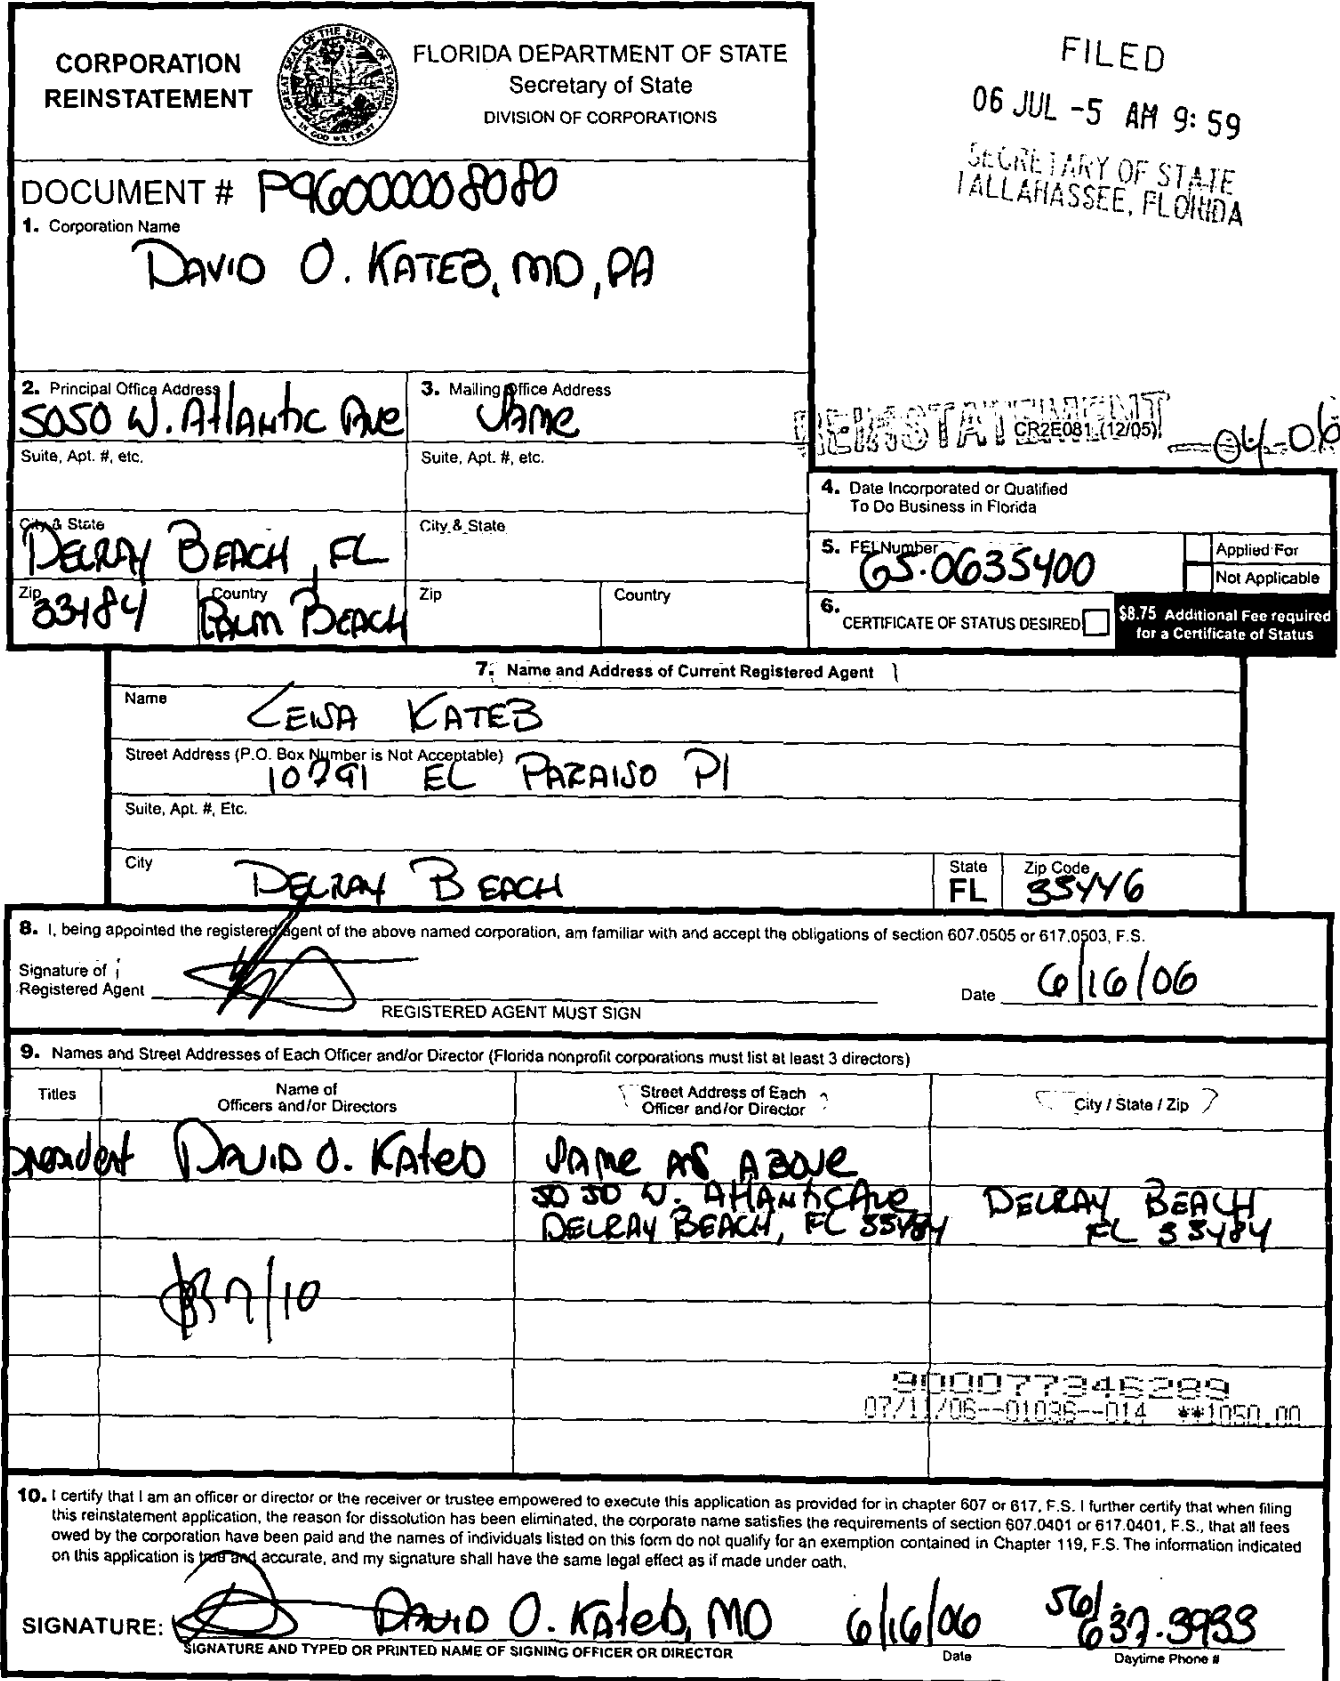 CORPORATION
REINSTATEMENT
FLORIDA DEPARTMENT OF STATE
Secretary of State
DIVISION OF CORPORATIONS
FILED
06 JUL -5 AM 9:59
SECRETARY OF STATE
TALLAHASSEE, FLORIDA
DOCUMENT # P96000008080
1. Corporation Name
DAVID O. KATEB, MD, PA
2. Principal Office Address
5050 W. Atlantic Ave
3. Mailing Office Address
Same
REINSTATEMENT
CR2E081 (12/05)
04-06
Suite, Apt. #, etc.
Suite, Apt. #, etc.
4. Date Incorporated or Qualified
To Do Business in Florida
City & State
DELRAY BEACH, FL
City & State
5. FEI Number
65-0635400
Applied For
Not Applicable
Zip
33484
Country
Palm BEACH
Zip
Country
6. CERTIFICATE OF STATUS DESIRED
$8.75 Additional Fee required
for a Certificate of Status
7. Name and Address of Current Registered Agent
Name
KATEB
Street Address (P.O. Box Number is Not Acceptable)
10791 EL PARAISO Pl
Suite, Apt. #, Etc.
City
DELRAY BEACH
State
FL
Zip Code
33446
8. I, being appointed the registered agent of the above named corporation, am familiar with and accept the obligations of section 607.0505 or 617.0503, F.S.
Signature of
Registered Agent
REGISTERED AGENT MUST SIGN
Date 6/16/06
9. Names and Street Addresses of Each Officer and/or Director (Florida nonprofit corporations must list at least 3 directors)
Titles
Name of
Officers and/or Directors
Street Address of Each
Officer and/or Director
City / State / Zip
President DAVID O. Kateb
SAME AS ABOVE
5050 W. Atlantic Ave
DELRAY BEACH, FL 33484
DELRAY BEACH
FL 33484
7/10
900077346289
07/11/06--01036--014 **1050.00
10. I certify that I am an officer or director or the receiver or trustee empowered to execute this application as provided for in chapter 607 or 617, F.S. I further certify that when filing
this reinstatement application, the reason for dissolution has been eliminated, the corporate name satisfies the requirements of section 607.0401 or 617.0401, F.S., that all fees
owed by the corporation have been paid and the names of individuals listed on this form do not qualify for an exemption contained in Chapter 119, F.S. The information indicated
on this application is true and accurate, and my signature shall have the same legal effect as if made under oath.
SIGNATURE: DAVID O. Kateb, MD 6/16/06 561. 637.3933
SIGNATURE AND TYPED OR PRINTED NAME OF SIGNING OFFICER OR DIRECTOR
Date
Daytime Phone #